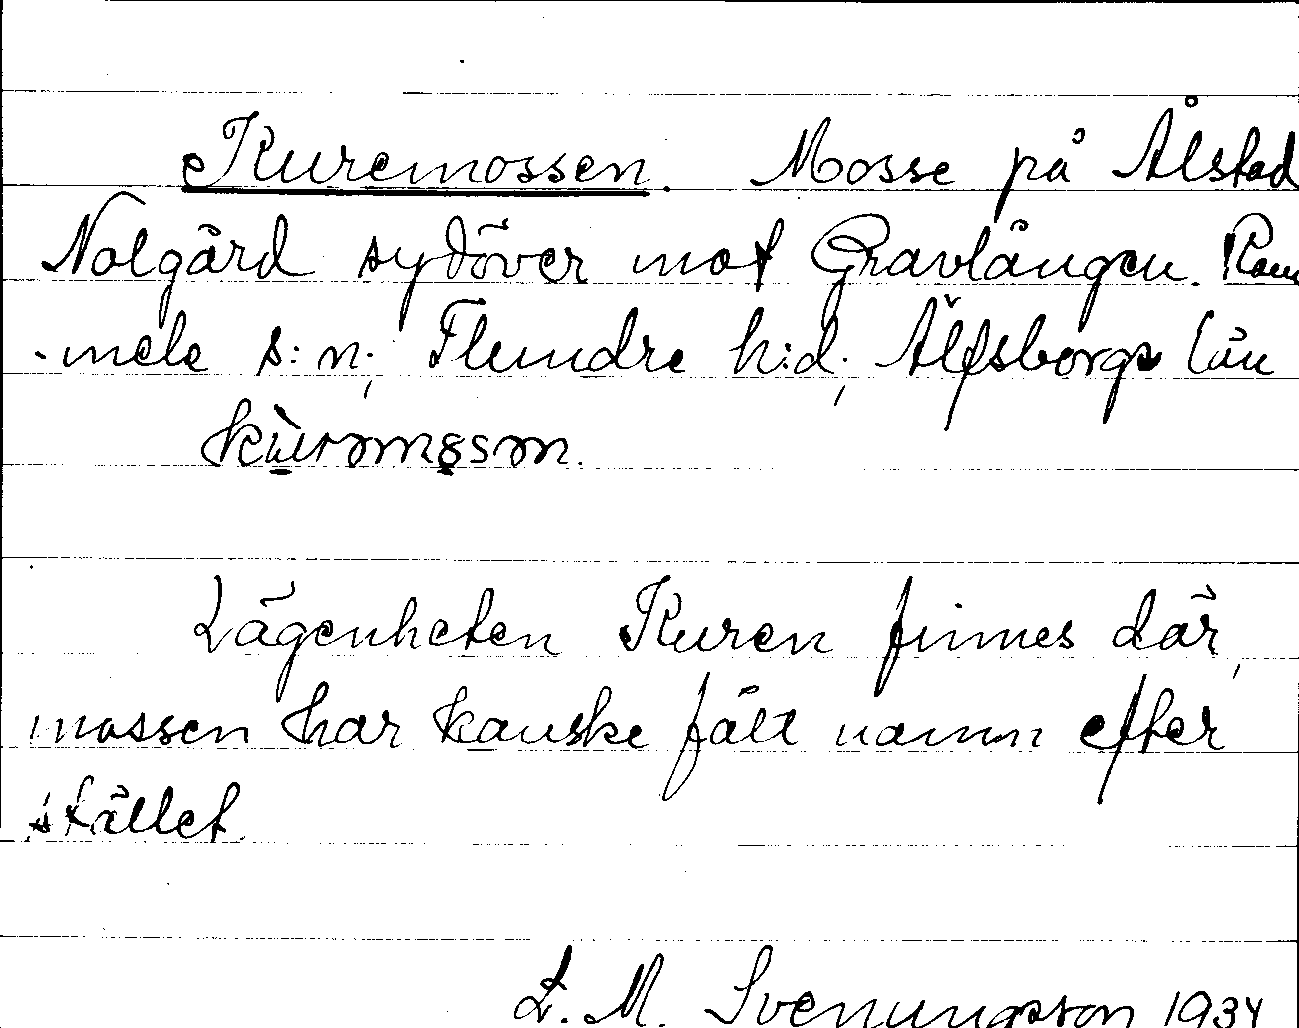 Kuremossen. Mosse på Ålstad
Nolgård sydöver mot Gravlången. Rom
-mele s:n; Flundre h:d; Älfsborgs län
kùrəmɷsən.
Lägenheten Kuren finnes där,
mossen har kanske fått namn efter
stället.
L. M. Svenungsson 1934